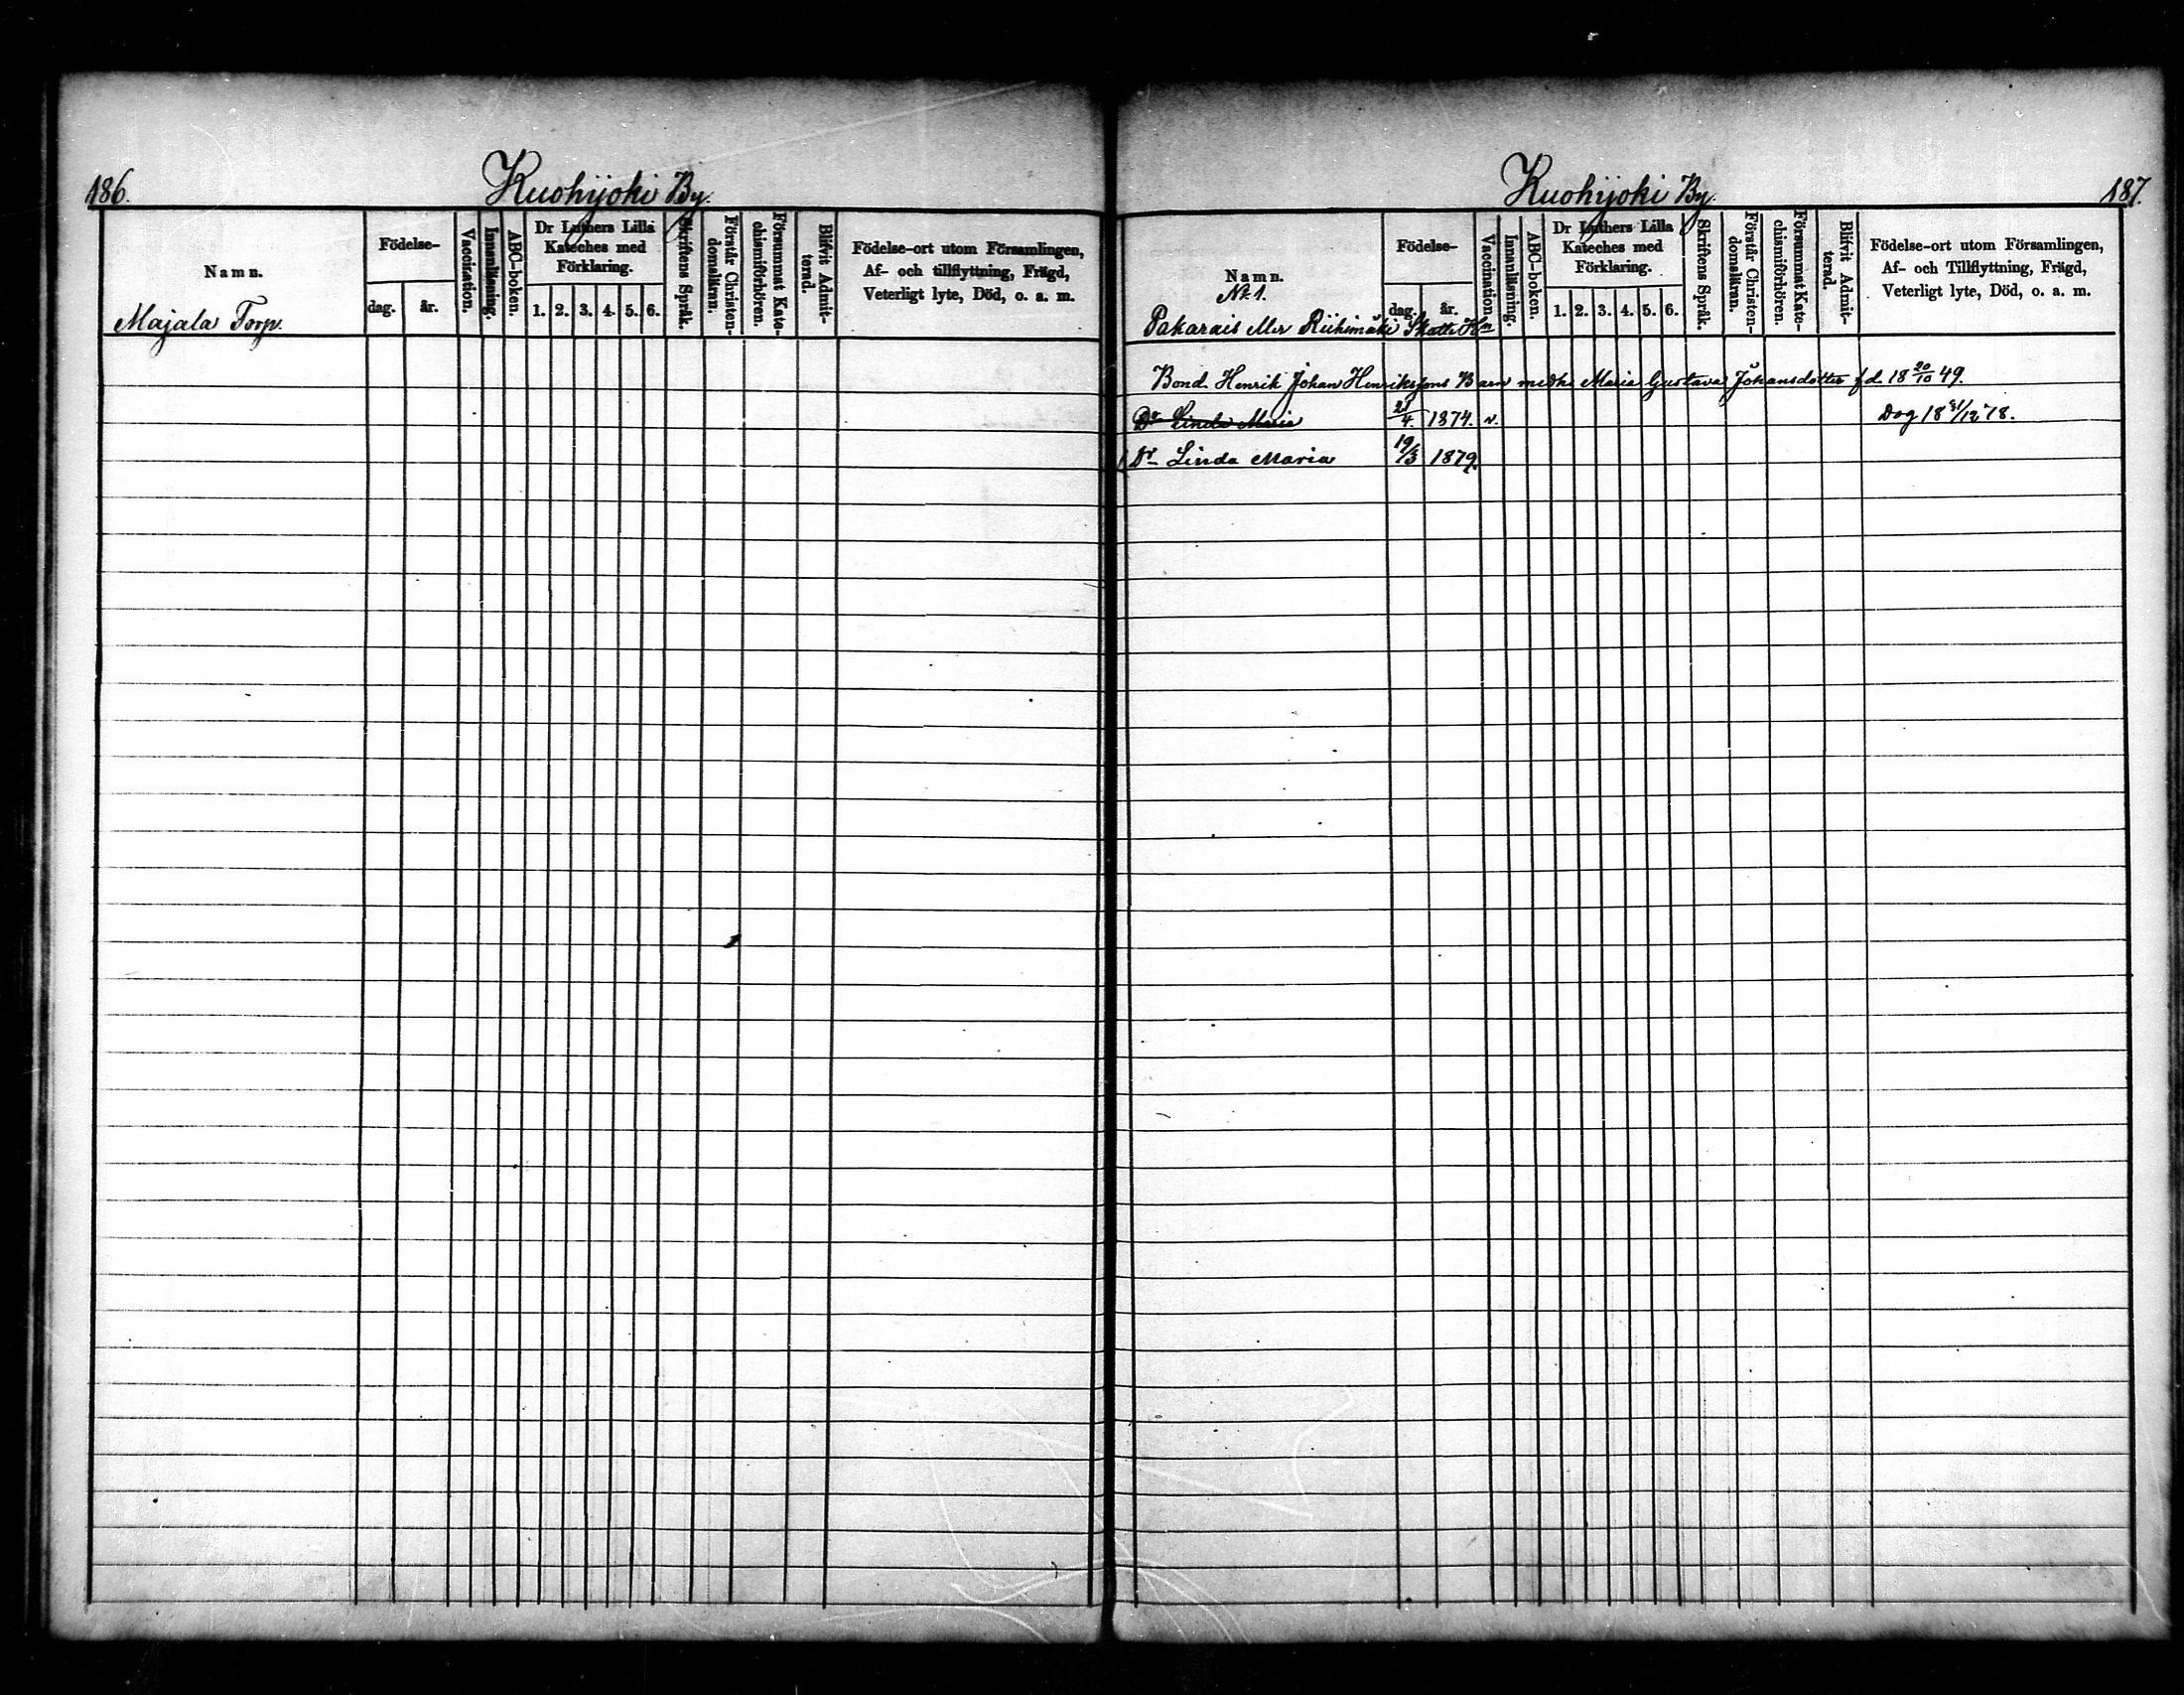 186.
Kuohijoki By.
Namn.
Födelse-
dag.
år.
Vaccination.
Innanläsning.
ABC-boken.
Dr Luthers Lilla
Kateches med
Förklaring.
1. 2. 3. 4. 5. 6.
Skriftens Språk.
Förstår Christen-
domsläran.
Försummat Kate-
chismiförhören.
Blifvit Admit-
terad.
Födelse-ort utom Församlingen,
Af- och tillflyttning, Frägd,
Veterligt lyte, Död, o. a. m.
Majala Torp.
Kuohijoki By.
187.
Namn.
No 1.
Födelse-
dag.
år.
Vaccination.
Innanläsning.
ABC-boken.
Dr Luthers Lilla
Kateches med
Förklaring.
1. 2. 3. 4. 5. 6.
Skriftens Språk.
Förstår Christen-
domsläran.
Försummat Kate-
chismiförhören.
Blifvit Admit-
terad.
Födelse-ort utom Församlingen,
Af- och Tillflyttning, Frägd,
Veterligt lyte, Död, o. a. m.
Pakarais eller Riihimäki Skatte Hn
Bond. Henrik Johan Henrikssons Barn med hu Maria Gustava Johansdotter fd. 18 20/10 49.
Dr Linda Maria 21/4 1874. v. Dog 18 31/12 78.
Dr Linda Maria 19/3 1879.